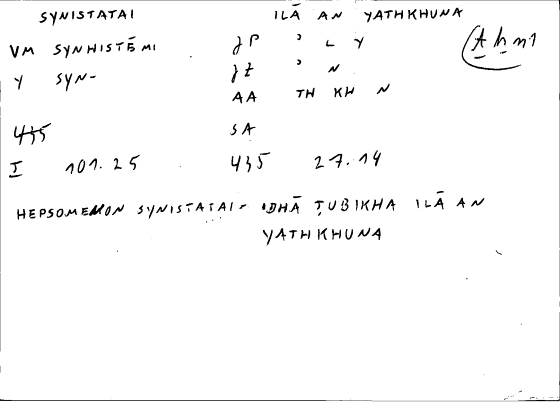 SYNISTATAI ILĀ AN YATHKHUNA
VM SYNHISTĒMI JP ʾ L Y
Y SYN- JZ ʾ N
AA TH KH N
435 SA
I 101.25 435 27.14
HEPSOMENON SYNISTATAI - IDHĀ ṬUBIKHA ILĀ AN
YATHKHUNA